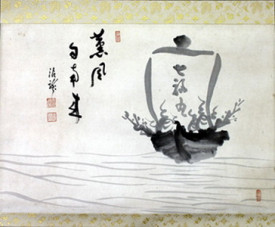 薫風
自南来
七福丸